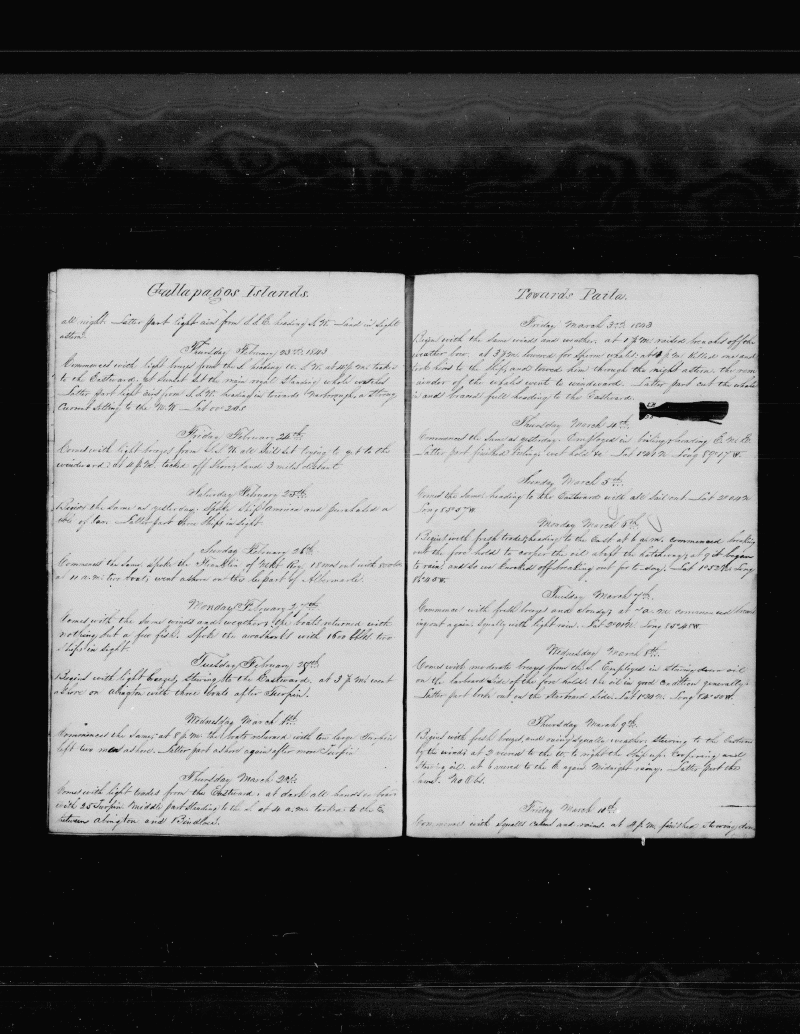 Gallapagos Islands.
all night. Latter part light airs from S.S.E. heading S.W. Land in sight
astern.
Thursday February 23rd 1843
Commences with light breezes from the S heading W.S.W. at 4 P.M. tacked
to the Eastward. at Sunset let the main royal Standing whole watches
Latter part light airs from S.S.W. heading in towards Narborough, a Strong
Current Setting to the N.W. Lat 00° 20 S
Friday February 24th
Comes with light breezes from S.S.W. all Sail Set trying to get to the
windward; at 4 P.M. tacked off Shore land 3 miles distant
Saturday February 25th
Begins the Same as yesterday. Spoke Ship America and purchased a
of tar. Latter part three Ships in sight
Sunday February 26th
Commences the Same. Spoke the Hamilton of
at 10 a.m. two boats went ashore on this part of Albemarle.
Monday February 27th
Comes with the Same winds and weather. The boats returned with
nothing but a few fish. Spoke the with 1600 bbls two
Ships in sight.
Tuesday February 28th
Begins with light breezes, Steering to the Eastward, at 3 P.M. went
ashore on Abington with three boats after Turpin.
Wednesday March 1st
Commences the Same; at 8 p.m. the boats returned with ten large Turpin
left two men ashore. Latter part ashore again after more Turpin
Thursday March 2nd
Comes with light trades from the Eastward; at dark all hands on board
with 25 Turpin. Middle part Standing to the S. at 4 a.m. tacked to the E.
between Abington and Bindloes.
Towards Paita.
Friday March 3rd 1843
Begins with the Same winds and weather. at 1 P.M. raised breaches off the
weather bow. at 3 P.M. lowered for Sperm whales; at P.M. killed one and
took him to the Ship, and towed him through the night astern. the rem
ainder of the whales went to windward. Latter part cut the whale
in and braced full heading to the Eastward.
Saturday March 4th
Commences the Same as yesterday. Employed in boiling & heading E.N.E.
Latter part finished boiling, wet hold &c. Lat 1°40 N Long 89°17 W.
Sunday March 5th
Comes the Same heading to the Eastward with all Sail out. Lat 2°04 N
Long 88°57 W
Monday March 6th
Begins with fresh trades heading to the East at 6 a.m. commenced breaking
out the fore hold to cooper the oil abaft the hatchway; at 9 it began
to rain and So we knocked off breaking out for to-day. Lat 1°52 N Long
Tuesday March 7th
Commences with fresh breezes and cloudy; at 7 a.m. commenced break
ing out again. Squally with light rain. Lat 2°01 N Long 85°48 W
Wednesday March 8th
Comes with moderate breezes from the S. Employed in Stowing down oil
on the larboard Side of the fore hold. the oil in good condition generally.
Latter part broke out on the Starboard Side. Lat 1°30 N. Long 84°50 W.
Thursday March 9th
Begins with fresh breezes and rainy squally weather, Steering to the Eastern
by the wind; at 2 veered to the W. to night the Ship up. Coopering and
Stowing oil. at 6 veered to the E again Midnight rainy. Latter part the
Same. No Obs.
Friday March 10th
Commences with Squalls calms and rains. at 4 p.m. finished Stowing down